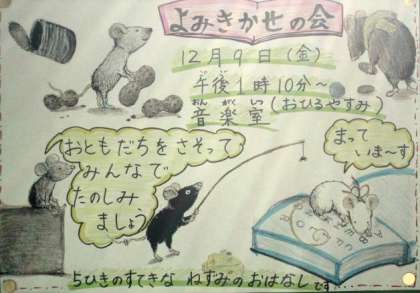 よみきかせの会
12月9日(金)
午後1時10分～
音楽室(おひるやすみ)
おともだちをさそって
みんなで
たのしみ
ましょう
まって
いま〜す
5ひきのすてきな ねずみのおはなしです…